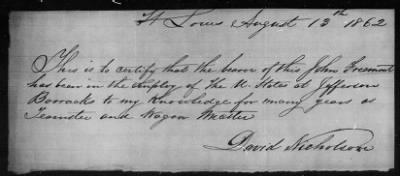 St Louis August 13th 1862
This is to certify that the bearer of this John Fremont
has been in the employ of the U. States at Jefferson
Barracks to my Knowledge for many years as
Teamster and Wagon Master
David Nicholson